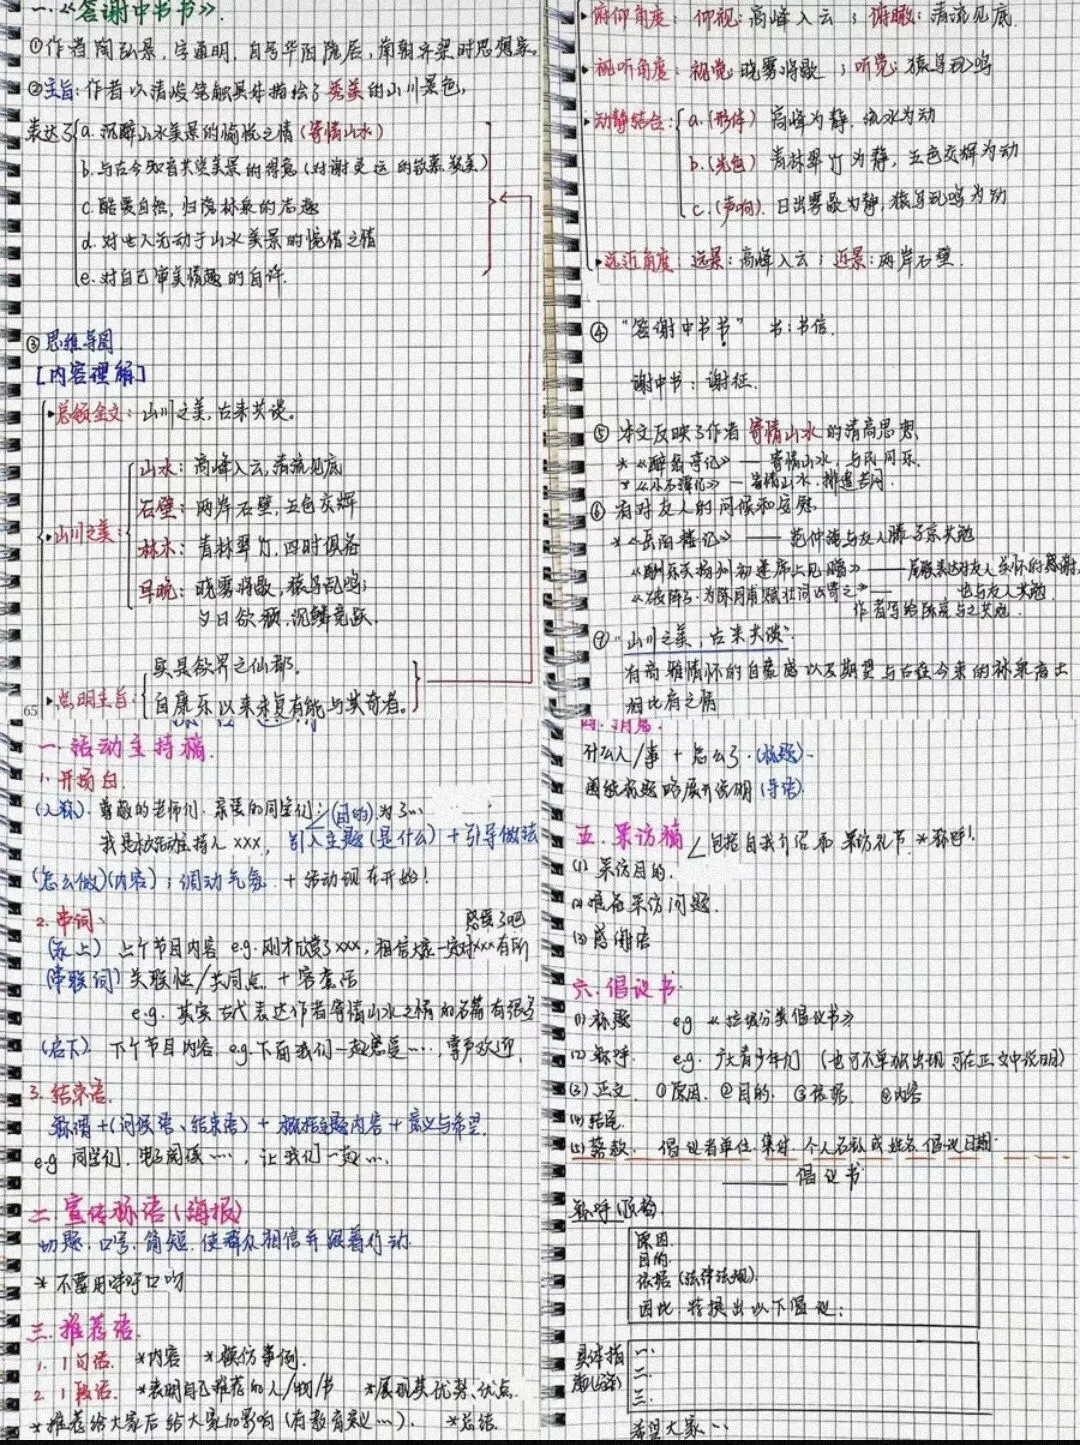 一.《答谢中书书》.
①作者陶弘景,字通明,自号华阳隐居,南朝齐梁时思想家。
②主旨:作者以清峻笔触具体描绘了秀美的山川景色,
表达了 a.沉醉山水美景的愉悦之情(寄情山水)
b.与古今知音共赏美景的得意(对谢灵运的钦慕)
c.酷爱自然,归隐林泉的志趣
d.对世人无动于山水美景的惋惜之情
e.对自己审美情趣的自许.
③思维导图
[内容理解]
总领全文:山川之美,古来共谈。
山川之美:
山水:高峰入云,清流见底
石壁:两岸石壁,五色交辉
林木:青林翠竹,四时俱备
早晚:晓雾将歇,猿鸟乱鸣;
夕日欲颓,沉鳞竞跃.
点明主旨:
实是欲界之仙都.
自康乐以来未复有能与其奇者。
65
俯仰角度:仰视:高峰入云;俯瞰:清流见底.
视听角度:视觉:晓雾将歇;听觉:猿鸟乱鸣
动静结合:a.(形体)高峰为静,流水为动
b.(光色)青林翠竹为静,五色交辉为动
c.(声响).日出雾歇为静,猿鸟乱鸣为动
远近角度:远景:高峰入云;近景:两岸石壁.
④"答谢中书书" 书:书信.
谢中书:谢征.
⑤本文反映了作者寄情山水的清高思想.
*《醉翁亭记》——寄情山水,与民同乐.
*《小石潭记》——寄情山水,排遣苦闷.
⑥有对友人的问候和安慰
*《岳阳楼记》——范仲淹与友人滕子京共勉
《酬乐天扬州初逢席上见赠》——尾联表达对友人关怀的感谢,
也与友人共勉.
《破阵子·为陈同甫赋壮词以寄之》——
作者写给陈亮与之共勉.
⑦"山川之美,古来共谈".
有高雅情怀的自豪感以及期望与古往今来的林泉高士
相比肩之情
一.活动主持稿.
1.开场白.
(人称).尊敬的老师们.亲爱的同学们:(目的)为了…
我是本次活动主持人xxx, 引入主题(是什么)+引导做法
(怎么做)(内容);调动气氛 +活动现在开始!
2.串词、
(承上) 上个节目内容 e.g.刚才欣赏了xxx,相信大家一定对xxx有所
感受了吧
(串联词) 关联性/共同点 + 客套话
e.g. 其实古代表达作者寄情山水之情的名篇有很多
(启下) 下个节目内容 e.g.下面我们一起感受…,掌声欢迎.
3.结束语.
称谓+(问候语、结束语)+概括主题内容+意义与希望.
e.g 同学们,…,让我们一起….
二.宣传标语(海报)
切题.口号,简短.使群众相信并跟着行动
*不要用呼吁口吻
三.推荐语.
1. 1句语. *内容 *模仿事例.
2. 1段语. *表明自己推荐的人/物/书 *展现其优势、优点.
*推荐给大家后给大家的影响(有教育意义…). *总结.
四.消息.
什么人/事 + 怎么了.(标题).
围绕标题略展开说明(导语)
五.采访稿 包括自我介绍和采访礼节 *称呼!
(1) 采访目的.
(2) 准备采访问题.
(3) 感谢语
六.倡议书.
(1)标题 eg《垃圾分类倡议书》
(2)称呼. e.g. 广大青少年们 (也可不单独出现 可在正文中说明)
(3)正文. ①原因. ②目的. ③依据. ④内容
(4)结尾.
(5)落款. 倡议者单位.集体.个人名称或姓名.倡议日期.
倡议书
称呼顶格.
原因.
目的.
依据(法律法规).
因此 特提出以下倡议:
具体措
一.
二.
三.
希望大家…